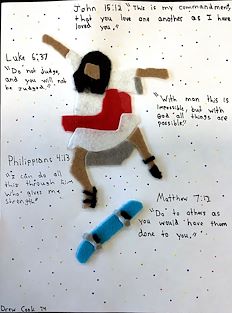 John 15:12 "This is my commandment,
that you love one another as I have
loved you."
Luke 6:37
"Do not Judge,
and you will not
be Judged."
"With man this is
impossible, but with
God all things are
possible."
Philippians 4:13
"I can do all
this through him
who gives me
strength."
Matthew 7:12
"Do to others as
you would have them
done to you."
Drew Cook